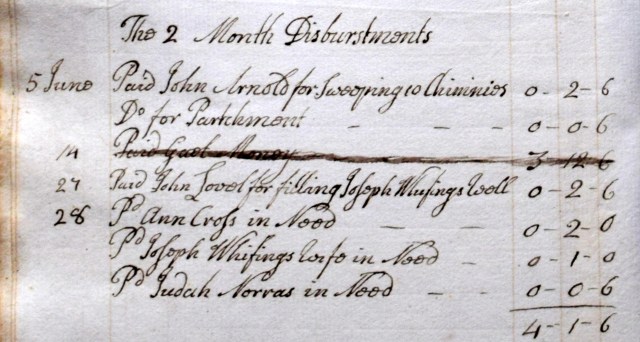 The 2 Month Disburstments
5 June Paid John Arnold for Sweeping 10 Chimnies 0 - 2 - 6
Do for Partchment - - - 0 - 0 - 6
14 Paid Gael Money 3 - 12 - 6
27 Paid John Lovel for filling Joseph Whifings Well 0 - 2 - 6
28 Pd Ann Cross in Need - - 0 - 2 - 0
Pd Joseph Whifings wife in Need - 0 - 1 - 0
Pd Judah Norras in Need - - 0 - 0 - 6
4 - 1 - 6